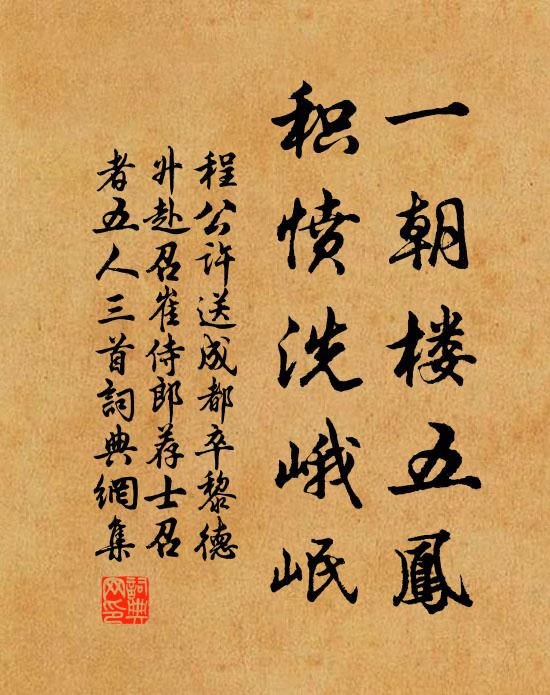 一朝楼五鳳
积愤洗峨岷
程公许送成都卒黎德
升赴召崔侍郎荐士召
者五人三首詞典網集
詞典网印